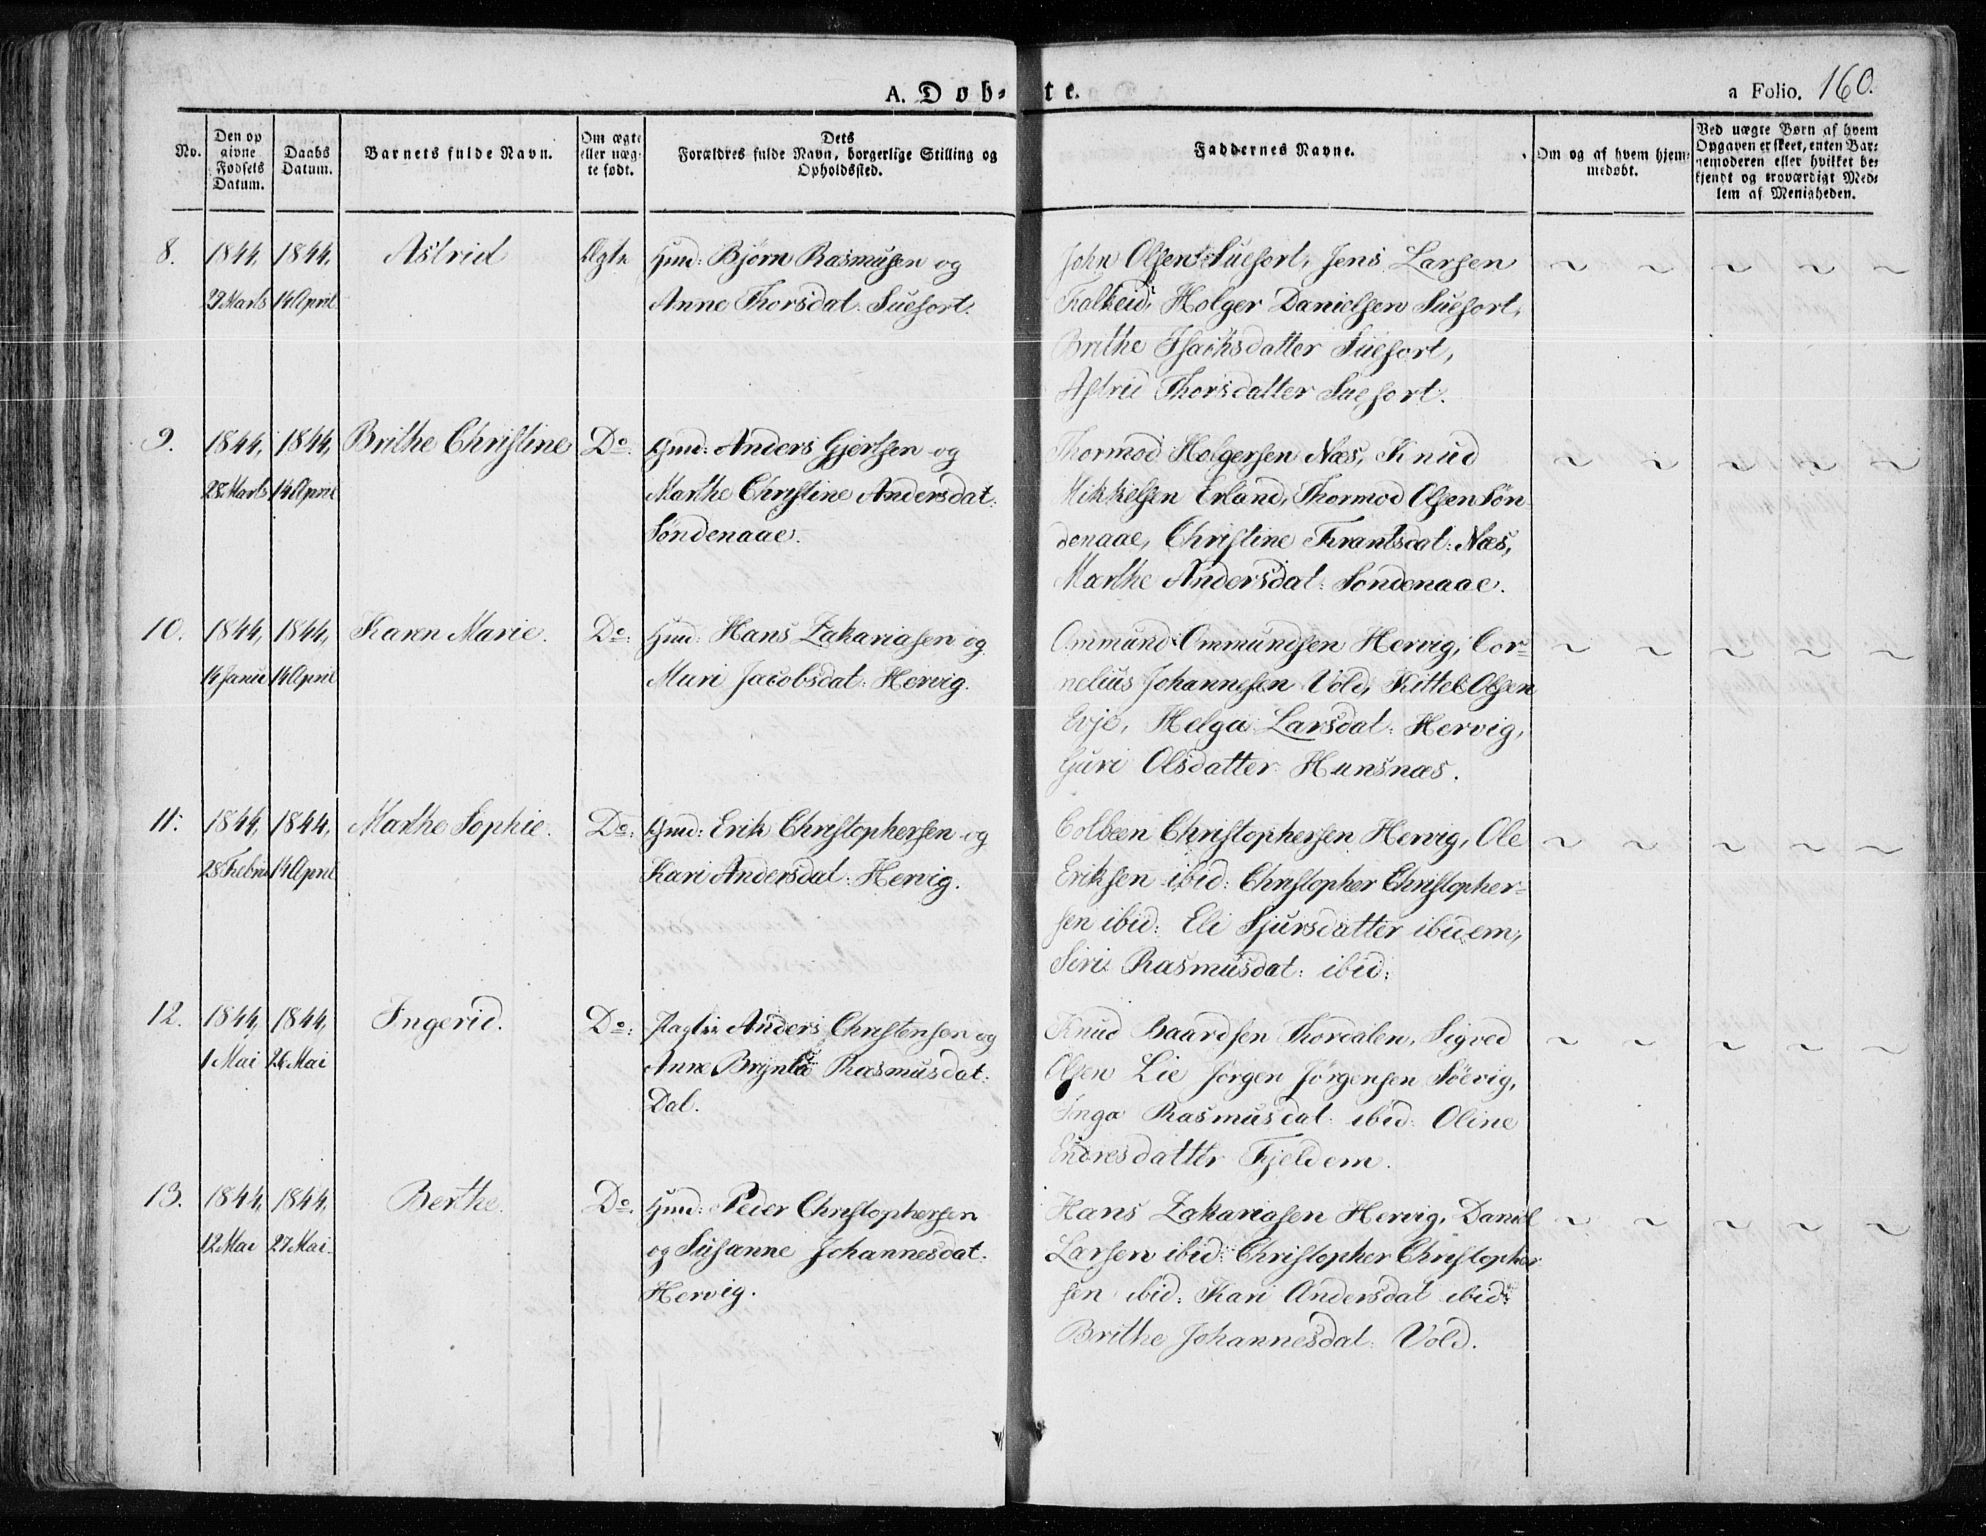 A. Døb- te. a Folio. 160.
No. Den op givne Fødsels Datum. Daabs Datum. Barnets fulde Navn. Om ægte eller uæg- te født. Dets Forældres fulde Navn, borgerlige Stilling og Opholdssted. Faddernes Navne. Om og af hvem hjem- medøbt. Ved uægte Børn af hvem Opgaven er skeet, enten Bar- nemoderen eller hvilket be- kjendt og troværdigt Med- lem af Menigheden.
8. 1844, 1844, Astrid Ægte Gmd: Bjørn Rasmusen og John Olsen Suefort, Jens Larsen
Marts 14 April Anne Thorsdat: Suefort. Kalheid, Holger Danielsen Suefort,
Brithe Isachsdatter Suefort,
Astrid Thorsdatter Suefort.
9. 1844, 1844, Brithe Christine Do. Gmd: Anders Gjertsen og Thormod Holgersen Næs, Knud
28 Marts 14 April Marthe Christine Andersdat: Mikkelsen Erland, Thormod Olsen Søn-
Søndenaae. denaae, Christine Frantsdat: Næs,
Marthe Andersdat: Søndenaae.
10. 1844, 1844, Karen Marie. Do: Gmd: Hans Zakariasen og Ommund Ommundsen Hervig, Cor-
14 Janu 14 April Muri Jacobsdat: Hervig. nelius Johannesen Vold, Kittel Olsen
Evje, Helga Larsdat: Hervig,
Guri Olsdatter Hunsnæs.
11. 1844, 1844, Marthe Sophie. Do: Gmd: Erik Christophersen og Colbeen Christophersen Hervig, Ole
28 Febru 14 April Kari Andersdat: Hervig. Eriksen ibid: Christopher Christopher-
sen ibid: Eli Sjursdatter ibidem,
Siri Rasmusdat: ibid:
12. 1844, 1844, Ingerid. Do: Anders Christensen og Knud Baardsen Thordalen, Sigved
1 Mai 26 Mai Anne Rasmusdat: Olsen Lie Jørgen Jørgensen Søevig,
Dal. Inga Rasmusdat: ibid: Oline
Endresdatter Fjeldem.
13. 1844, 1844, Berthe. Do. Gmd: Peder Christophersen Hans Zakariasen Hervig, Daniel
12 Mai 27 Mai. og Susanne Johannesdat: Larsen ibid: Christopher Christopher
Hervig. sen ibid: Kari Andersdat ibid:
Brithe Johannesdat: Vold.